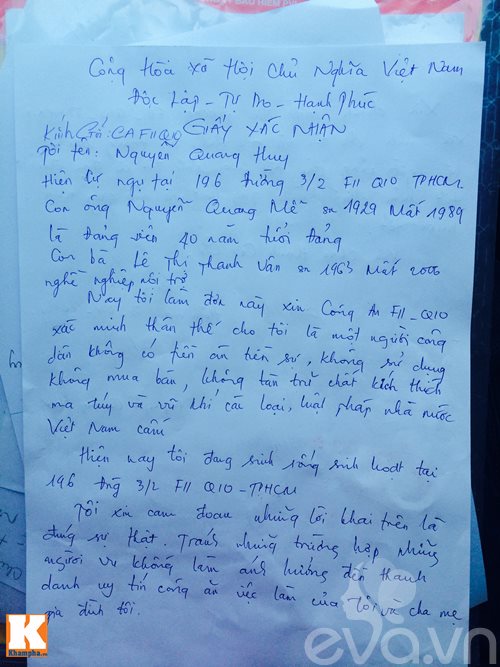 BẢO HIỂM PHI
Cộng Hòa Xã Hội Chủ Nghĩa Việt Nam
Độc Lập - Tự Do - Hạnh Phúc
Kính Gửi: CA F11 Q10 GIẤY XÁC NHẬN
Tôi tên: Nguyễn Quang Huy
Hiện cư ngụ tại 196 Đường 3/2 F11 Q10 TPHCM
Con ông Nguyễn Quang Mễ sn 1929 Mất 1989
là Đảng viên 40 năm tuổi Đảng
Con bà Lê Thị Thanh Vân sn 1963 Mất 2000
nghề nghiệp nội trợ
Nay tôi làm đơn này xin Công An F11 - Q10
xác minh thân thế cho tôi là một người công
dân không có tiền án tiền sự, không sử dụng
không mua bán, không tàn trữ chất kích thích
ma túy và vũ khí các loại, luật pháp nhà nước
Việt Nam cấm
Hiện nay tôi đang sinh sống sinh hoạt tại
196 Đng 3/2 F11 Q10 - TPHCM
Tôi xin cam đoan những lời khai trên là
đúng sự thật. Tranh những trường hợp những
người vu không làm ảnh hưởng đến thanh
danh uy tín công ăn việc làm của tôi và cha mẹ
gia đình tôi.
K
Khampha.vn
eva.vn